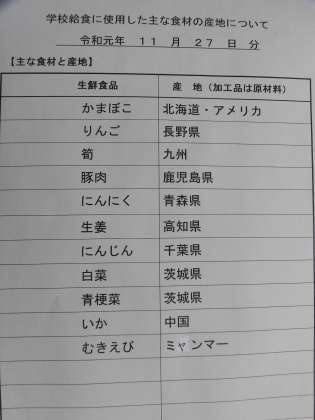 学校給食に使用した主な食材の産地について
令和元年 11 月 27 日 分
【主な食材と産地】
生鮮食品 産 地（加工品は原材料）
かまぼこ 北海道・アメリカ
りんご 長野県
筍 九州
豚肉 鹿児島県
にんにく 青森県
生姜 高知県
にんじん 千葉県
白菜 茨城県
青梗菜 茨城県
いか 中国
むきえび ミャンマー